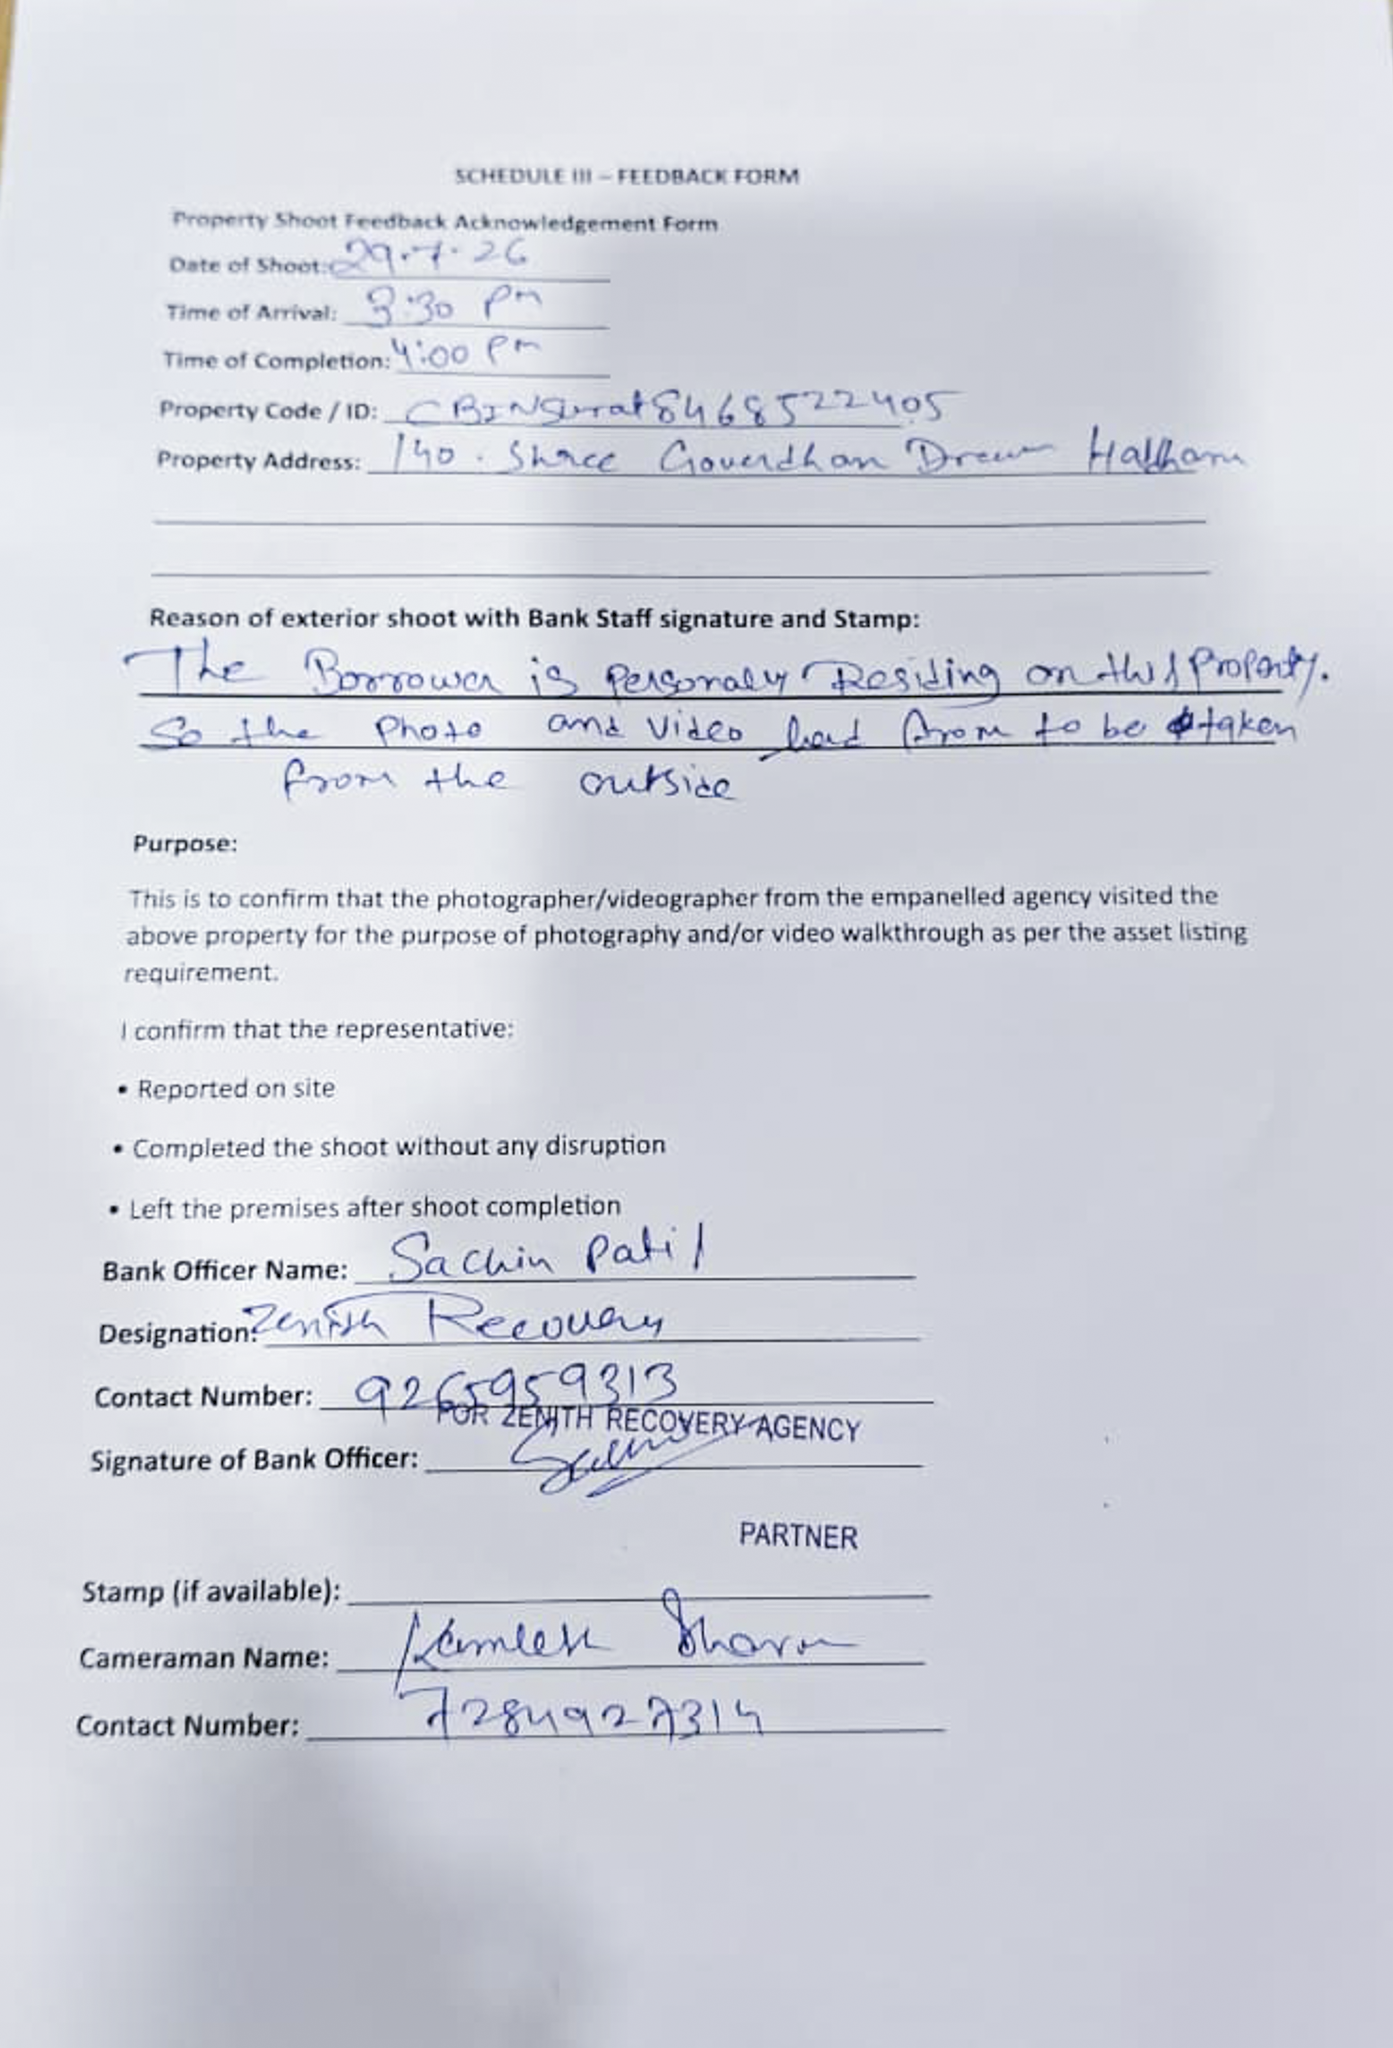 SCHEDULE III – FEEDBACK FORM
Property Shoot Feedback Acknowledgement Form
Date of Shoot: 29.7.26
Time of Arrival: 3:30 Pm
Time of Completion: 4:00 Pm
Property Code / ID: CBINSurat8468522405
Property Address: 140. Shree Goverdhan
Reason of exterior shoot with Bank Staff signature and Stamp:
The Borrower is Personaly Residing on this Property.
So the Photo and Video had from to be taken
from the outside
Purpose:
This is to confirm that the photographer/videographer from the empanelled agency visited the
above property for the purpose of photography and/or video walkthrough as per the asset listing
requirement.
I confirm that the representative:
• Reported on site
• Completed the shoot without any disruption
• Left the premises after shoot completion
Bank Officer Name: Sachin Patil
Designation: Zenith Recovery
Contact Number: 9265959313
FOR ZENITH RECOVERY AGENCY
Signature of Bank Officer:
PARTNER
Stamp (if available):
Cameraman Name: Kamlesh
Contact Number: 7284927314